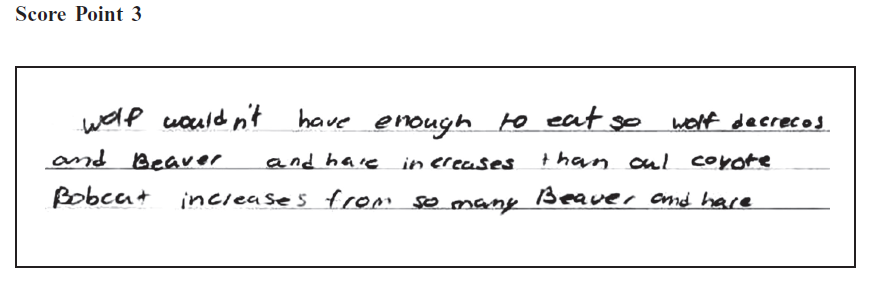 Score Point 3
wolf wouldn't have enough to eat so wolf decrecos
and Beaver and hare increases than owl coyote
Bobcat increases from so many Beaver and hare